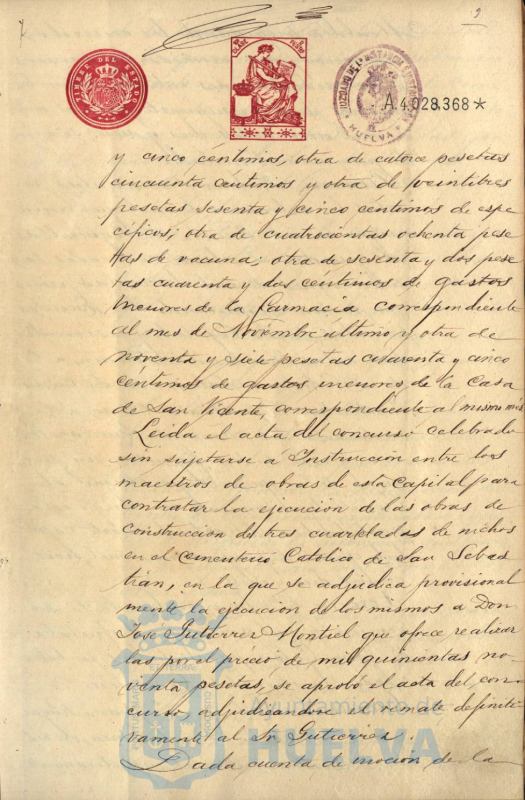 9
TIMBRE DEL ESTADO
JUZGADO DE 1ª INSTANCIA
HUELVA
A.4.028.368*
y cinco céntimos, otra de catorce pesetas
cincuenta céntimos y otra de veintitres
pesetas sesenta y cinco céntimos de espe
cíficos; otra de cuatrocientas ochenta pese
tas de vacuna; otra de sesenta y dos pese
tas cuarenta y dos céntimos de gastos
menores de la Farmacia correspondiente
al mes de Noviembre ultimo, y otra de
noventa y siete pesetas cuarenta y cinco
céntimos de gastos menores, de la Casa
de San Vicente, correspondiente al mismo mes
Leida el acta del concurso celebrado
sin sujetarse á Instrucción entre los
maestros de obras de esta Capital para
contratar la ejecucion de las obras de
construcción de tres cuarteladas de nichos
en el cementerio Católico de San Sebas
tián, en la que se adjudica provisional
mente la ejecucion de los mismos a Don
José Gutierrez Montiel que ofrece realizar
las por el précio de mil quinientas no
venta pesetas, se aprobó el acta del con
curso adjudicandose el remate definiti
vamente al Sr. Gutierrez.
Dada cuenta de mocion de la
HUELVA